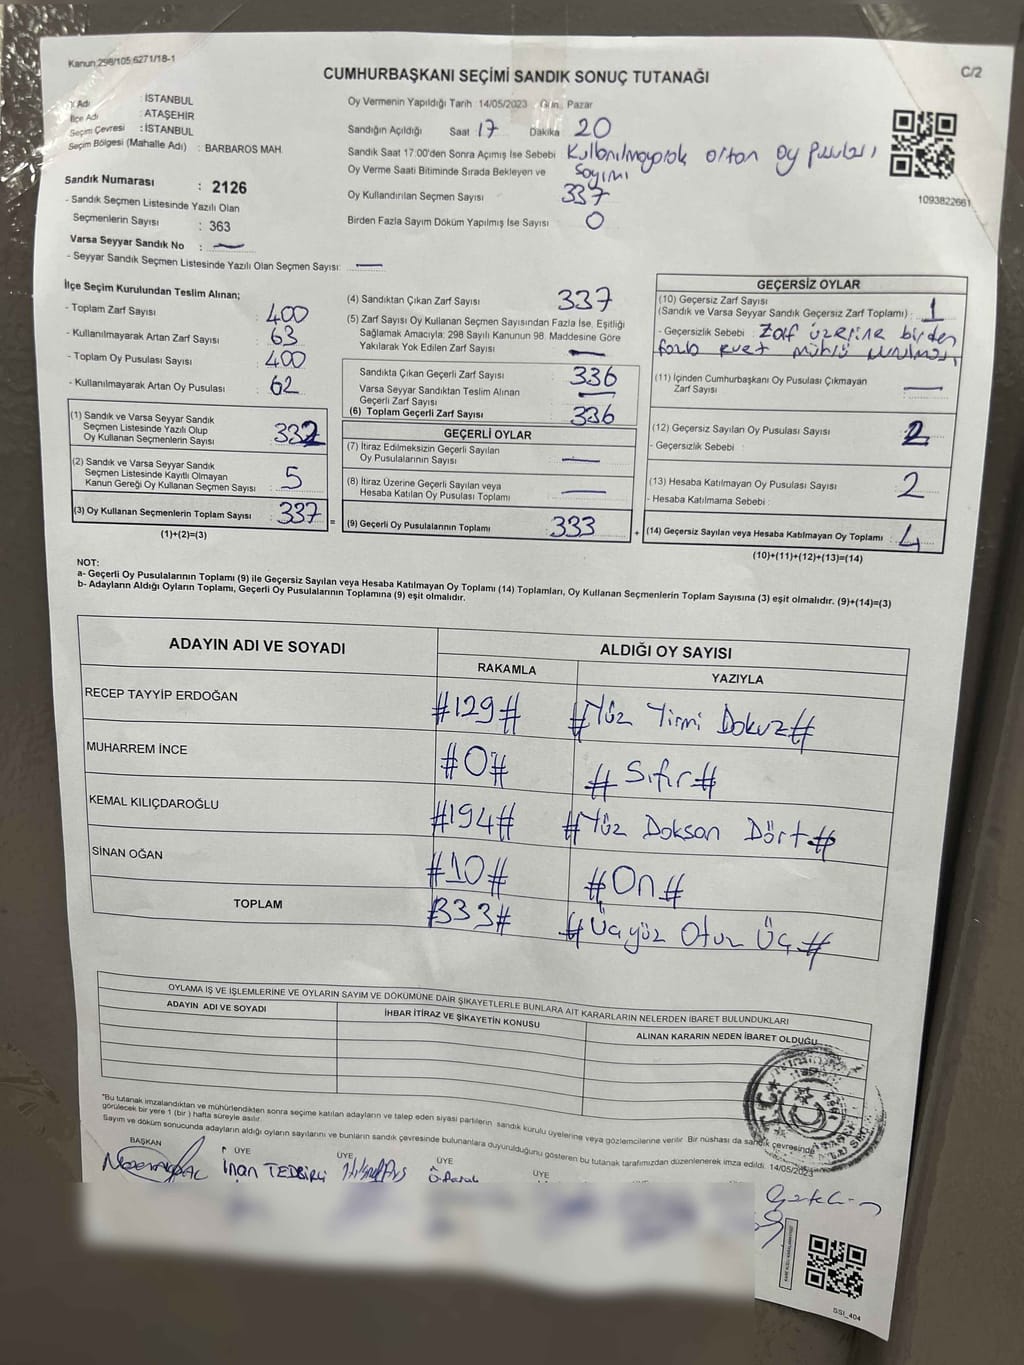 Kanun,298/105,6271/18-1
CUMHURBAŞKANI SEÇİMİ SANDIK SONUÇ TUTANAĞI
C/2
İl Adı : İSTANBUL
İlçe Adı : ATAŞEHİR
Seçim Çevresi : İSTANBUL
Seçim Bölgesi (Mahalle Adı) : BARBAROS MAH.
Sandık Numarası : 2126
- Sandık Seçmen Listesinde Yazılı Olan
Seçmenlerin Sayısı : 363
Varsa Seyyar Sandık No : —
- Seyyar Sandık Seçmen Listesinde Yazılı Olan Seçmen Sayısı: —
Oy Vermenin Yapıldığı Tarih 14/05/2023 Gün Pazar
Sandığın Açıldığı Saat 17 Dakika 20
Sandık Saat 17:00'den Sonra Açımış İse Sebebi Kullanılmayarak artan oy pusulası
sayımı
Oy Verme Saati Bitiminde Sırada Bekleyen ve
Oy Kullandırılan Seçmen Sayısı 337
Birden Fazla Sayım Döküm Yapılmış İse Sayısı 0
1093822661
İlçe Seçim Kurulundan Teslim Alınan;
- Toplam Zarf Sayısı : 400
- Kullanılmayarak Artan Zarf Sayısı : 63
- Toplam Oy Pusulası Sayısı : 400
- Kullanılmayarak Artan Oy Pusulası : 62
(1) Sandık ve Varsa Seyyar Sandık
Seçmen Listesinde Yazılı Olup
Oy Kullanan Seçmenlerin Sayısı : 332
(2) Sandık ve Varsa Seyyar Sandık
Seçmen Listesinde Kayıtlı Olmayan
Kanun Gereği Oy Kullanan Seçmen Sayısı : 5
(3) Oy Kullanan Seçmenlerin Toplam Sayısı : 337
(1)+(2)=(3)
=
(4) Sandıktan Çıkan Zarf Sayısı 337
(5) Zarf Sayısı Oy Kullanan Seçmen Sayısından Fazla İse, Eşitliği
Sağlamak Amacıyla; 298 Sayılı Kanunun 98. Maddesine Göre
Yakılarak Yok Edilen Zarf Sayısı —
Sandıkta Çıkan Geçerli Zarf Sayısı 336
Varsa Seyyar Sandıktan Teslim Alınan
Geçerli Zarf Sayısı —
(6) Toplam Geçerli Zarf Sayısı 336
GEÇERLİ OYLAR
(7) İtiraz Edilmeksizin Geçerli Sayılan
Oy Pusulalarının Sayısı —
(8) İtiraz Üzerine Geçerli Sayılan veya
Hesaba Katılan Oy Pusulası Toplamı —
(9) Geçerli Oy Pusulalarının Toplamı : 333
+
GEÇERSİZ OYLAR
(10) Geçersiz Zarf Sayısı
(Sandık ve Varsa Seyyar Sandık Geçersiz Zarf Toplamı) : 1
- Geçersizlik Sebebi : Zarf üzerine birden
fazla evet mührü vurulması
(11) İçinden Cumhurbaşkanı Oy Pusulası Çıkmayan
Zarf Sayısı —
(12) Geçersiz Sayılan Oy Pusulası Sayısı 2
- Geçersizlik Sebebi :
(13) Hesaba Katılmayan Oy Pusulası Sayısı 2
- Hesaba Katılmama Sebebi :
(14) Geçersiz Sayılan veya Hesaba Katılmayan Oy Toplamı : 4
(10)+(11)+(12)+(13)=(14)
NOT:
a- Geçerli Oy Pusulalarının Toplamı (9) ile Geçersiz Sayılan veya Hesaba Katılmayan Oy Toplamı (14) Toplamları, Oy Kullanan Seçmenlerin Toplam Sayısına (3) eşit olmalıdır. (9)+(14)=(3)
b- Adayların Aldığı Oyların Toplamı, Geçerli Oy Pusulalarının Toplamına (9) eşit olmalıdır.
ADAYIN ADI VE SOYADI ALDIĞI OY SAYISI
RAKAMLA YAZIYLA
RECEP TAYYİP ERDOĞAN #129# #Yüz Yirmi Dokuz#
MUHARREM İNCE #0# #Sıfır#
KEMAL KILIÇDAROĞLU #194# #Yüz Doksan Dört#
SİNAN OĞAN #10# #On#
TOPLAM #333# #Üçyüz Otuz Üç#
OYLAMA İŞ VE İŞLEMLERİNE VE OYLARIN SAYIM VE DÖKÜMÜNE DAİR ŞİKAYETLERLE BUNLARA AİT KARARLARIN NELERDEN İBARET BULUNDUKLARI
ADAYIN ADI VE SOYADI İHBAR İTİRAZ VE ŞİKAYETİN KONUSU ALINAN KARARIN NEDEN İBARET OLDUĞU
*Bu tutanak imzalandıktan ve mühürlendikten sonra seçime katılan adayların ve talep eden siyasi partilerin sandık kurulu üyelerine veya gözlemcilerine verilir. Bir nüshası da sandık çevresinde
görülecek bir yere 1 (bir) hafta süreyle asılır.
Sayım ve döküm sonucunda adayların aldığı oyların sayılarını ve bunların sandık çevresinde bulunanlara duyurulduğunu gösteren bu tutanak tarafımızdan düzenlenerek imza edildi. 14/05/2023
BAŞKAN ÜYE ÜYE ÜYE ÜYE
İnan TEDBİRLİ
T.C.
SSI_404